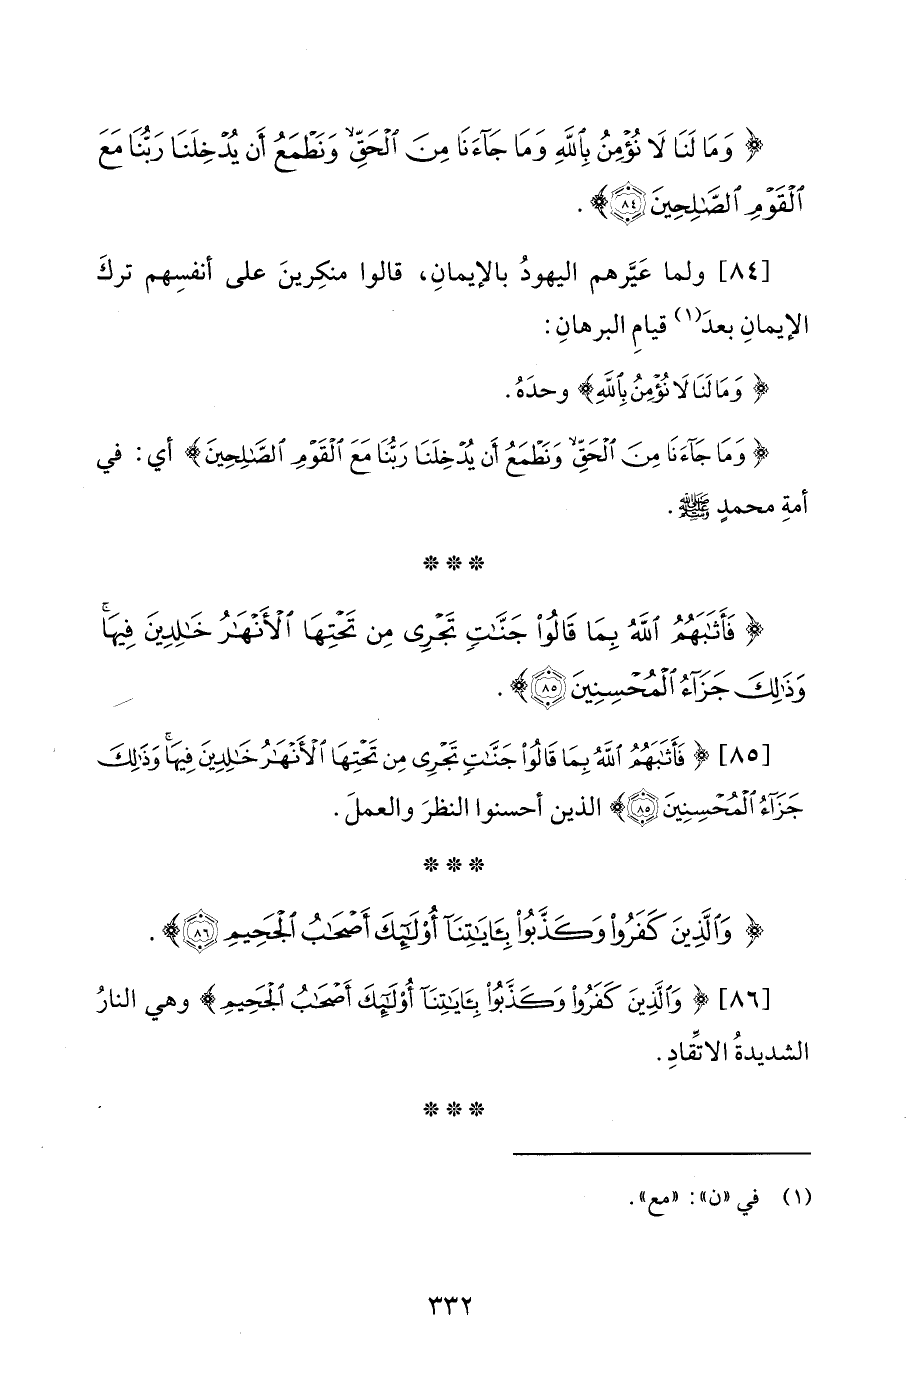 ﴿ وَمَا لَنَا لَا نُؤْمِنُ بِٱللَّهِ وَمَا جَآءَنَا مِنَ ٱلْحَقِّ وَنَطْمَعُ أَن يُدْخِلَنَا رَبُّنَا مَعَ
ٱلْقَوْمِ ٱلصَّٰلِحِينَ ٨٤ ﴾ .
[٨٤] ولما عَيَّرهم اليهودُ بالإيمانِ، قالوا منكِرينَ على أنفسِهم تركَ
الإيمانِ بعدَ(١) قيامِ البرهانِ:
﴿ وَمَا لَنَا لَا نُؤْمِنُ بِٱللَّهِ ﴾ وحدَهُ.
﴿ وَمَا جَآءَنَا مِنَ ٱلْحَقِّ وَنَطْمَعُ أَن يُدْخِلَنَا رَبُّنَا مَعَ ٱلْقَوْمِ ٱلصَّٰلِحِينَ ﴾ أي: في
أمةِ محمدٍ ﷺ.
*** 
﴿ فَأَثَٰبَهُمُ ٱللَّهُ بِمَا قَالُوا۟ جَنَّٰتٍ تَجْرِى مِن تَحْتِهَا ٱلْأَنْهَٰرُ خَٰلِدِينَ فِيهَا ۚ
وَذَٰلِكَ جَزَآءُ ٱلْمُحْسِنِينَ ٨٥ ﴾ .
[٨٥] ﴿ فَأَثَٰبَهُمُ ٱللَّهُ بِمَا قَالُوا۟ جَنَّٰتٍ تَجْرِى مِن تَحْتِهَا ٱلْأَنْهَٰرُ خَٰلِدِينَ فِيهَا ۚ وَذَٰلِكَ
جَزَآءُ ٱلْمُحْسِنِينَ ٨٥ ﴾ الذين أحسنوا النظرَ والعملَ.
***
﴿ وَٱلَّذِينَ كَفَرُوا۟ وَكَذَّبُوا۟ بِـَٔايَٰتِنَآ أُو۟لَٰٓئِكَ أَصْحَٰبُ ٱلْجَحِيمِ ٨٦ ﴾ .
[٨٦] ﴿ وَٱلَّذِينَ كَفَرُوا۟ وَكَذَّبُوا۟ بِـَٔايَٰتِنَآ أُو۟لَٰٓئِكَ أَصْحَٰبُ ٱلْجَحِيمِ ﴾ وهي النارُ
الشديدةُ الاتِّقادِ.
***
(١) في «ن»: «مع».
٣٣٢